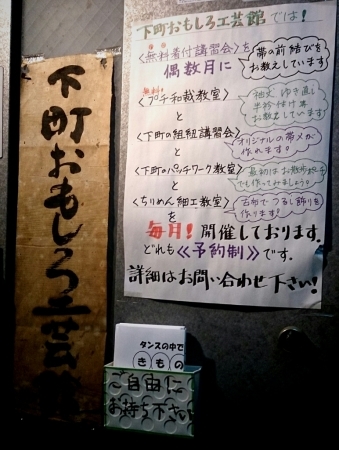 下町おもしろ工芸館
下町おもしろ工芸館では!
無料
〈無料着付講習会〉を
偶数月に
帯の前結びを
お教えしています
〈プチ和裁教室〉
と
〈下町の組紐講習会〉
オリジナルの帯〆が
作れます。
と
〈下町のパッチワーク教室〉
でも作ってみましょう。
と
〈ちりめん細工教室〉
古布でつるし飾りを
作ります。
を
毎月!開催しております。
どれも《予約制》です。
詳細はお問い合わせ下さい!
タンスの中で
きもの
ご自由に
お持ち下さい